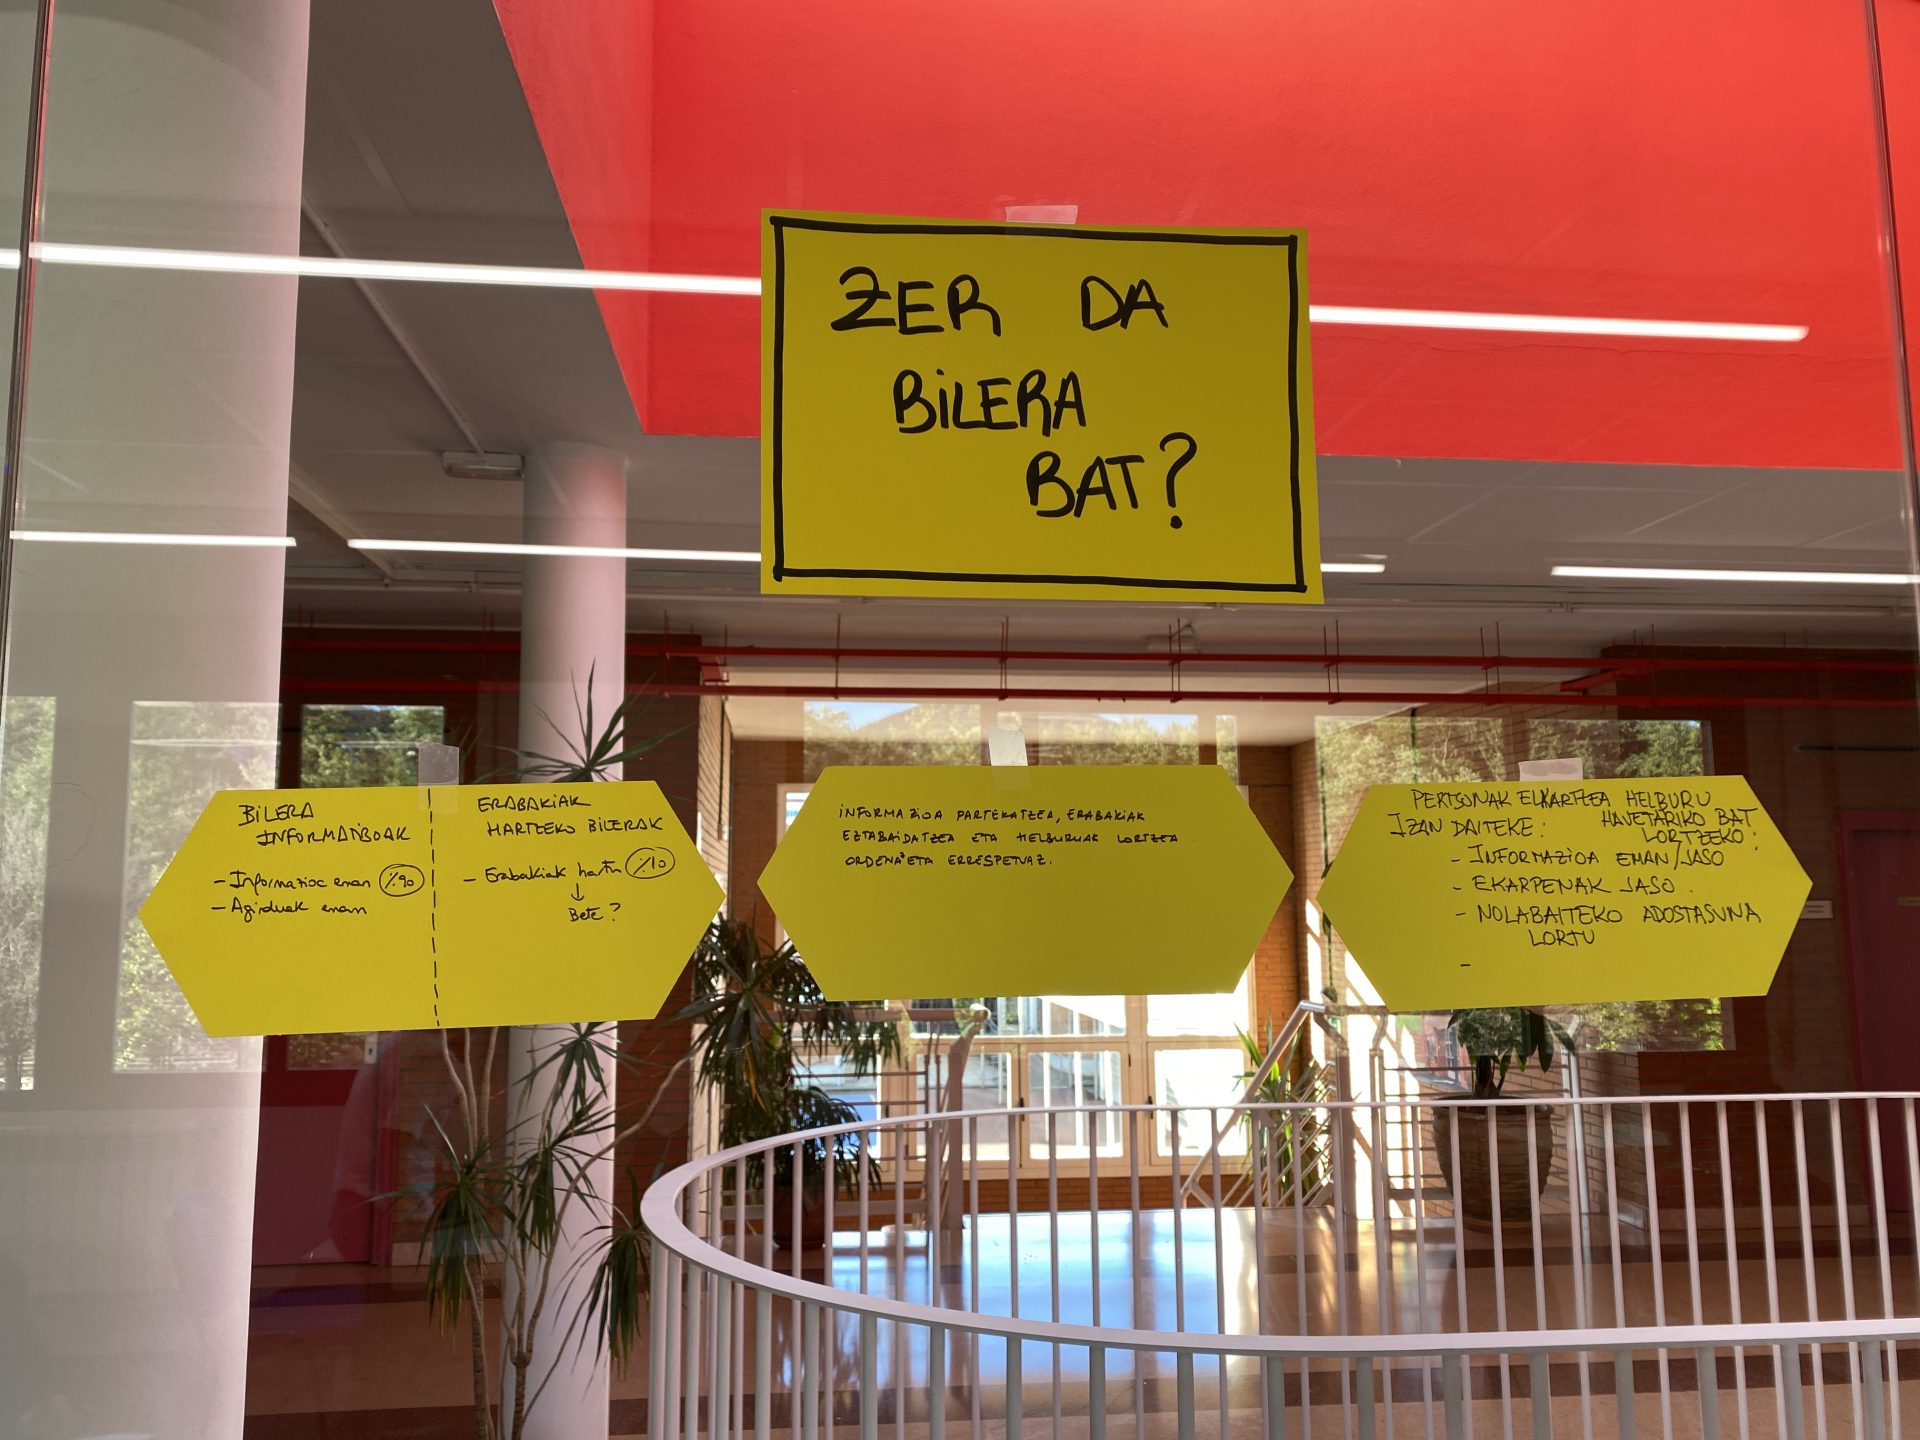 ZER DA
BILERA
BAT?
BILERA
INFORMATIBOAK
- Informazioa eman %90
- Aginduak eman
ERABAKIAK
HARTZEKO BILERAK
- Erabakiak hartu %10
↓
Bete?
INFORMAZIOA PARTEKATZEA, ERABAKIAK
EZTABAIDATZEA ETA HELBURUAK LORTZEA
ORDENA ETA ERRESPETUAZ.
PERTSONAK ELKARTZEA HELBURU
IZAN DAITEKE: HAUETARIKO BAT
LORTZEKO:
- INFORMAZIOA EMAN/JASO
- EKARPENAK JASO.
- NOLABAITEKO ADOSTASUNA
LORTU
-